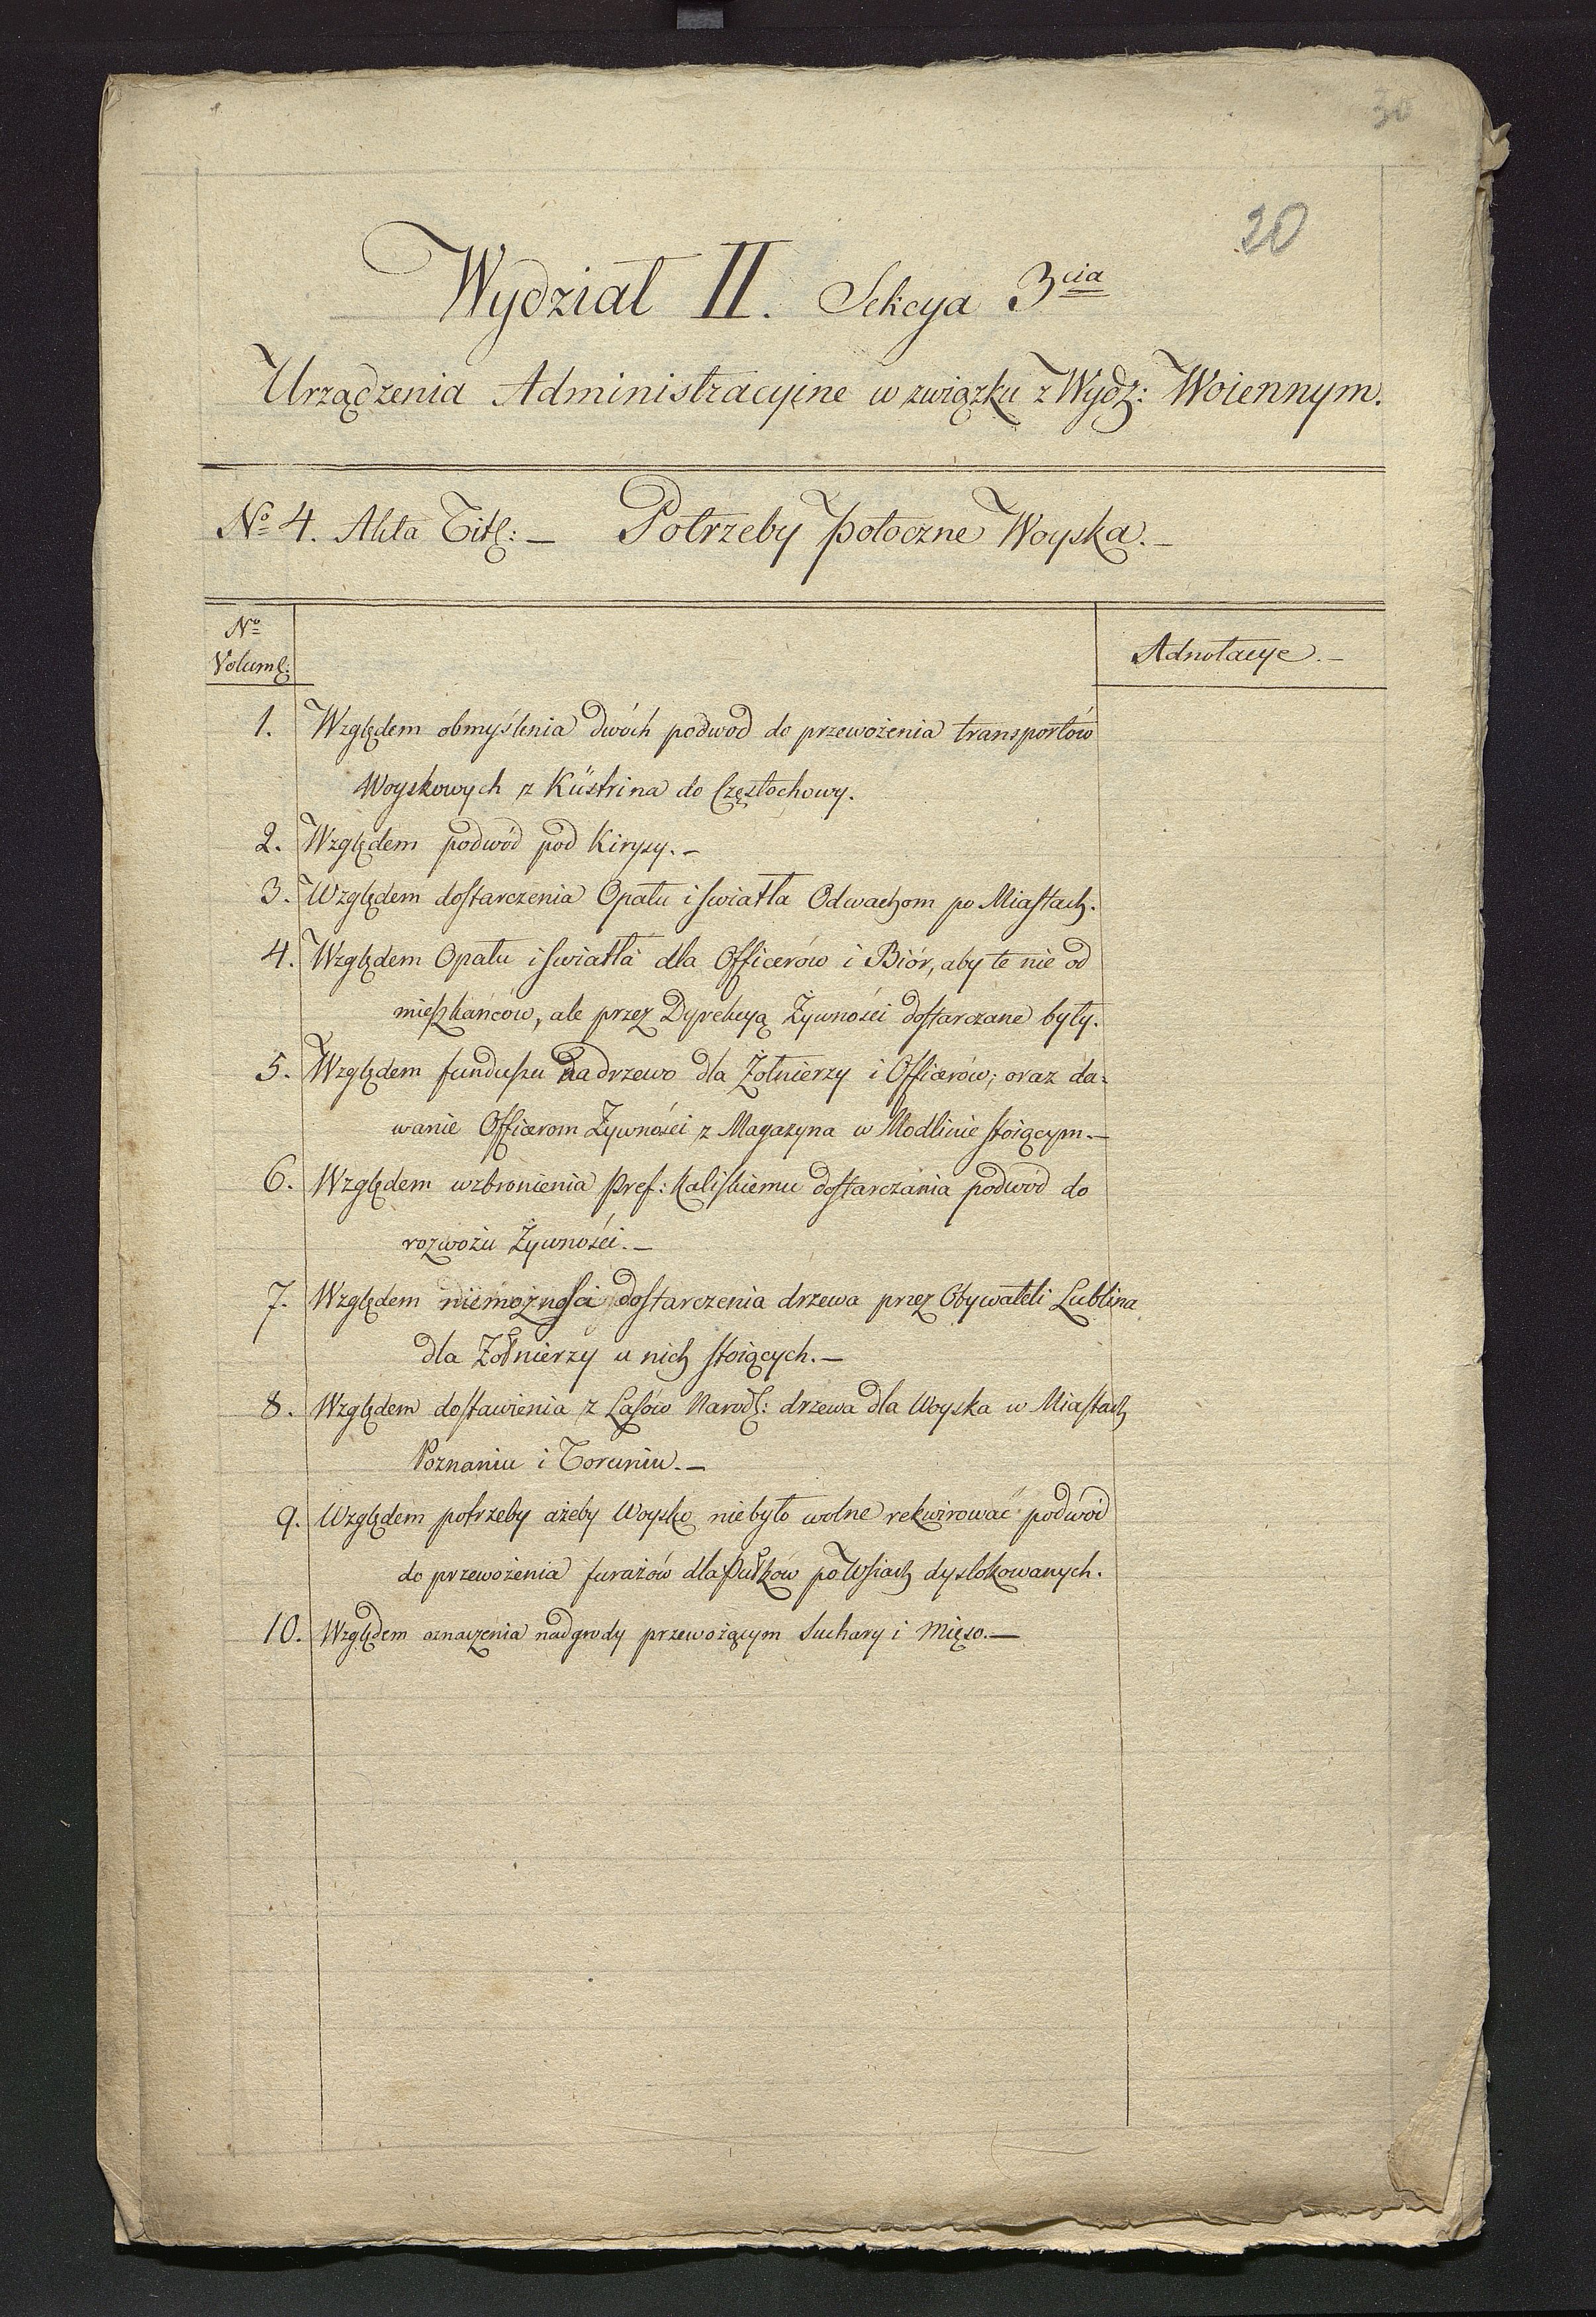 30
20
Wydział II. Sekcya 3cia
Urządzenia Administracyine w związku z Wydz: Woiennym.
No 4. Akta Titl: — Potrzeby potoczne Woyska. —
No
Voluml:
Adnotacye. —
1. Względem obmyślenia dwóch podwod do przewożenia transportów
Woyskowych z Küstrina do Częstochowy.
2. Względem podwód pod Kirysy. —
3. Względem dostarczenia Opału i swiatła Odwachom po Miastach.
4. Względem Opału i swiatła dla Officerów i Biór, aby te nie od
mieszkańców, ale przez Dyrekcyą Żywności dostarczane były.
5. Względem funduszu na drzewo dla Żołnierzy i Officerów; oraz da=
wanie Officerom Żywności z Magazyna w Modlinie stoiącym. —
6. Względem wzbronienia Pref: Kaliskiemu dostarczania podwód do
rozwożu Żywności. —
7. Względem niemożności dostarczenia drzewa przez Obywateli Lublina
dla Żołnierzy u nich stoiących. —
8. Względem dostawienia z Lasów Narodl: drzewa dla Woyska w Miastach
Poznaniu i Toruniu. —
9. Względem potrzeby ażeby Woysko niebyło wolne rekwirować podwód
do przewożenia furażów dla Pułków po Wsiach dyslokowanych.
10. Względem oznaczenia nadgrody przewożącym Suchary i Mięso. —